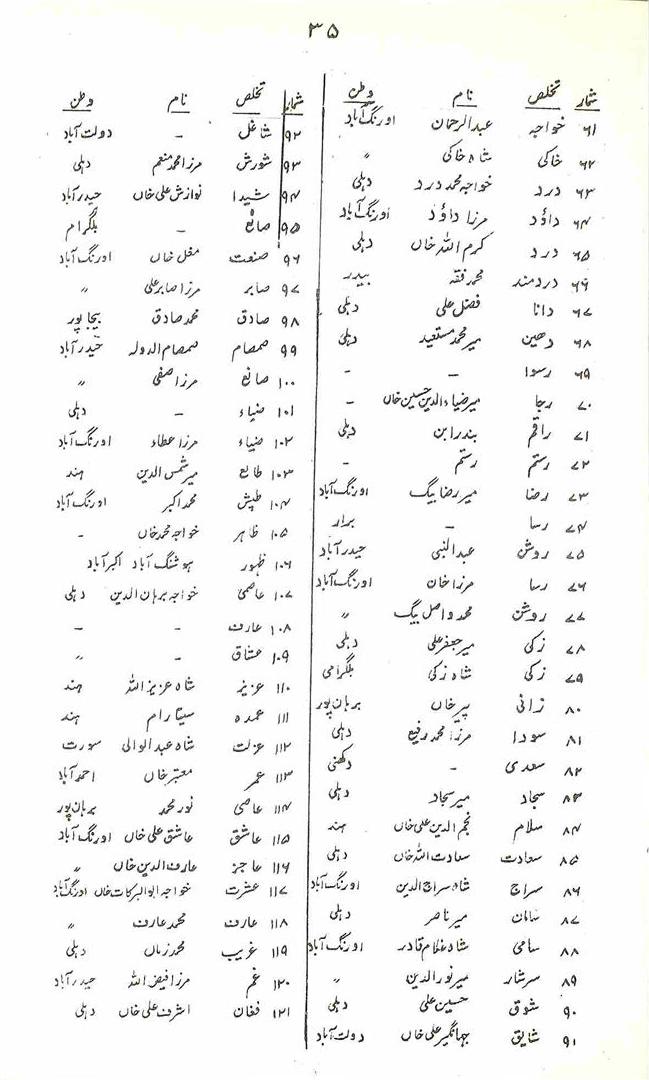 ۳۵
شمار تخلص نام وطن
۶۱ خواجہ عبدالرحمان اورنگ آباد
۶۲ خاکی شاہ خاکی "
۶۳ درد خواجہ محمد درد دہلی
۶۴ داؤد مرزا داؤد اورنگ آباد
۶۵ درد کرم اللہ خاں دہلی
۶۶ دردمند محمد فقہ بیدر
۶۷ دانا فضل علی دہلی
۶۸ دھین میر محمد مستعید دہلی
۶۹ رسوا – –
۷۰ رجا میر ضیاء الدین حسین خاں –
۷۱ راقم بندرابن دہلی
۷۲ رستم رستم –
۷۳ رضا میر رضا بیگ اورنگ آباد
۷۴ رسا – برار
۷۵ روشن عبدالنبی حیدرآباد
۷۶ رسا مرزا خان اورنگ آباد
۷۷ روشن محمد واصل بیگ "
۷۸ زکی میر جعفر علی دہلی
۷۹ زکی شاہ زکی بلگرامی
۸۰ زانی پیر خاں برہان پور
۸۱ سودا مرزا محمد رفیع دہلی
۸۲ سعدی – دکھنی
۸۳ سجاد میر سجاد دہلی
۸۴ سلام نجم الدین علی خاں ہند
۸۵ سعادت سعادت اللہ خاں دہلی
۸۶ سراج شاہ سراج الدین اورنگ آباد
۸۷ سامان میر ناصر دہلی
۸۸ سامی شاہ غلام قادر اورنگ آباد
۸۹ سرشار میر نورالدین "
۹۰ شوق حسین علی دہلی
۹۱ شایق جہانگیر علی خاں دولت آباد
شمار تخلص نام وطن
۹۲ شاغل – دولت آباد
۹۳ شورش مرزا محمد منعم دہلی
۹۴ شیدا نوازش علی خاں حیدرآباد
۹۵ صانع – بلگرام
۹۶ صنعت مغل خاں اورنگ آباد
۹۷ صابر مرزا صابر علی "
۹۸ صادق محمد صادق بیجاپور
۹۹ صمصام صمصام الدولہ حیدرآباد
۱۰۰ صانع مرزا صفی "
۱۰۱ ضیاء – دہلی
۱۰۲ ضیاء مرزا عطاء اورنگ آباد
۱۰۳ طالع میر شمس الدین ہند
۱۰۴ طپش محمد اکبر اورنگ آباد
۱۰۵ ظاہر خواجہ محمد خاں –
۱۰۶ ظہور ہوشنگ آباد اکبرآباد
۱۰۷ عاصمی خواجہ برہان الدین دہلی
۱۰۸ عارف – –
۱۰۹ عشاق – "
۱۱۰ عزیز شاہ عزیز اللہ ہند
۱۱۱ عمدہ سیتا رام ہند
۱۱۲ عزلت شاہ عبدالوالی سورت
۱۱۳ عمر معتبر خاں احمد آباد
۱۱۴ عاصی نور محمد برہان پور
۱۱۵ عاشق عاشق علی خاں اورنگ آباد
۱۱۶ عاجز عارف الدین خاں "
۱۱۷ عشرت خواجہ ابوالبرکات خاں اورنگ آباد
۱۱۸ عارف محمد عارف "
۱۱۹ غریب محمد زماں دہلی
۱۲۰ غم مرزا فیض اللہ حیدرآباد
۱۲۱ فغان اشرف علی خاں دہلی